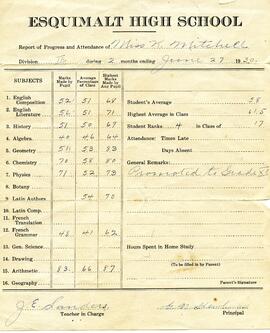 ESQUIMALT HIGH SCHOOL
Report of Progress and Attendance of Miss K. Mitchell
Division during 2 months ending June 27 1930
SUBJECTS Marks Made by Pupil Average Percentage of Class Highest Marks Made by Any Pupil
1. English Composition 52 51 68
2. English Literature 56 51 71
3. History 51 50 67
4. Algebra 40 46 64
5. Geometry 51 53 83
6. Chemistry 70 58 80
7. Physics 71 52 73
8. Botany
9. Latin Authors 54 70
10. Latin Comp.
11. French Translation
12. French Grammar 48 41 62
13. Gen. Science
14. Drawing
15. Arithmetic 83 66 87
16. Geography
Student's Average 58
Highest Average in Class 61.5
Student Ranks 4 in Class of 17
Attendance: Times Late
Days Absent
General Remarks:
Promoted to Grade XI
Hours Spent in Home Study
Parent's Signature
J. E. Sanders
Teacher in Charge
Principal